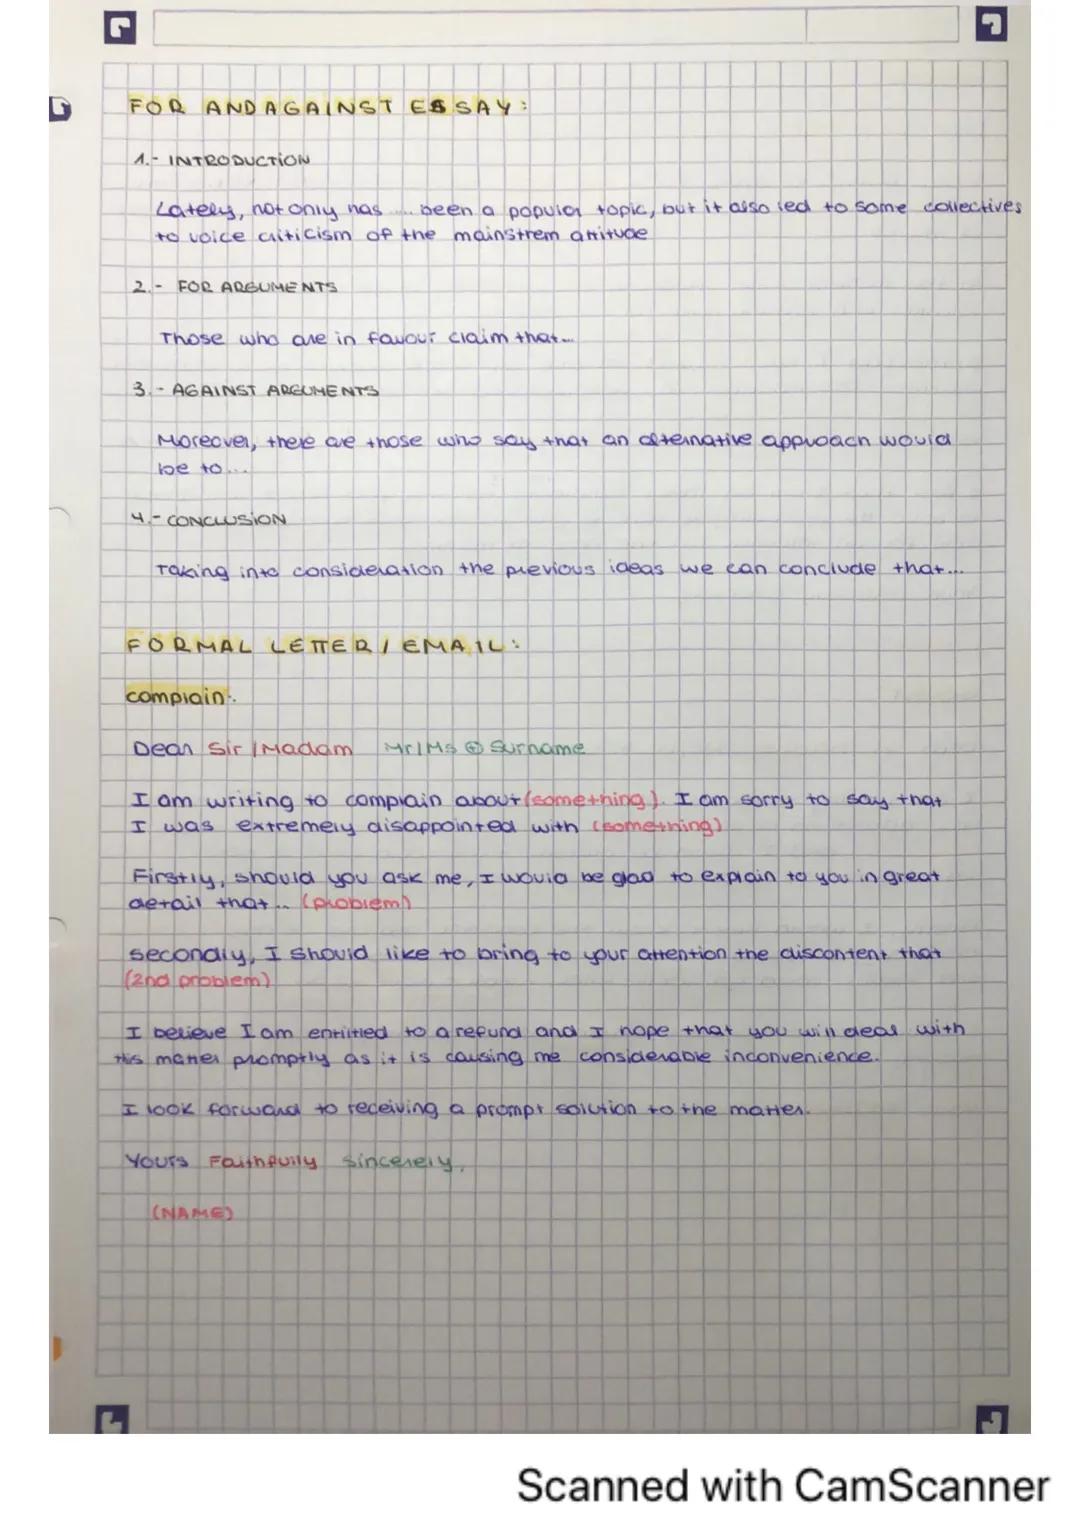 FOR AND AGAINST ESSAY:
1.- INTRODUCTION
Lately, not only has ... been a popular topic, but it also led to some collectives
to voice criticism of the mainstrem attitude
2.- FOR ARGUMENTS
Those who are in favour claim that...
3.- AGAINST ARGUMENTS
Moreover, there are those who say that an alternative approach would
be to...
4.- CONCLUSION
Taking into consideration the previous ideas we can conclude that...
FORMAL LETTER / EMAIL:
complain:
Dear Sir / Madam Mr/Ms + Surname
I am writing to complain about (something). I am sorry to say that
I was extremely disappointed with (something)
Firstly, should you ask me, I would be glad to explain to you in great
detail that... (problem)
Secondly, I should like to bring to your attention the discontent that
(2nd problem)
I believe I am entitled to a refund and I hope that you will deal with
this matter promptly as it is causing me considerable inconvenience.
I look forward to receiving a prompt solution to the matter.
Yours Faithfully sincerely,
(NAME)
Scanned with CamScanner